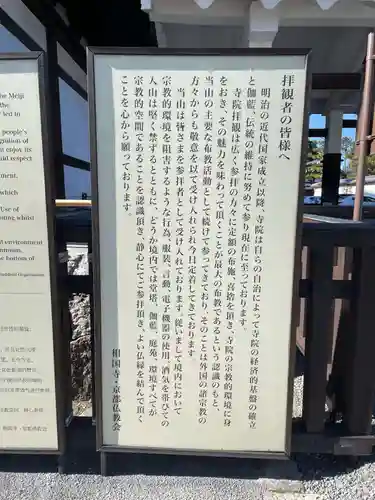 拝観者の皆様へ
明治の近代国家成立以降、寺院は自らの自治によって寺院の経済的基盤の確立
と伽藍、伝統の維持に努めて参りました。
寺院拝観は広く参拝の方々に定額の布施、喜捨を頂き、寺院の宗教的環境に身
をおき、その魅力を味わって頂くことが最大の布教であるという認識のもと、
当山の主要な布教活動として続けて参ってきており、そのことは外国の諸宗教の
方々からも敬意を以て受け入れられ今日定着してきております。
当山は皆さまを参拝者として受け入れております。従いまして境内において
宗教的環境を阻害するような行為、服装、言動、電子機器の使用、酒気を帯びての
入山は堅く禁ずるとともに、どうか境内では堂塔、伽藍、庭苑、環境すべてが
宗教的空間であることを認識頂き、静心にてご参拝頂き、よい仏縁を結んで頂く
ことを心から願っております。
相国寺・京都仏教会
he Meiji
of the
led to
people's
gnition of
t enjoy its
ial respect
ment.
which
Use of
 whilst
environment
ommon,
he bottom of